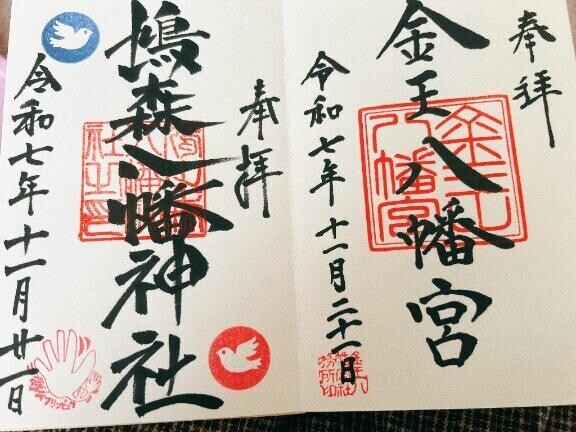 奉拝
金王八幡宮
令和七年十一月二十一日
金王八幡宮
奉拝
鳩森八幡神社
令和七年十一月廿一日